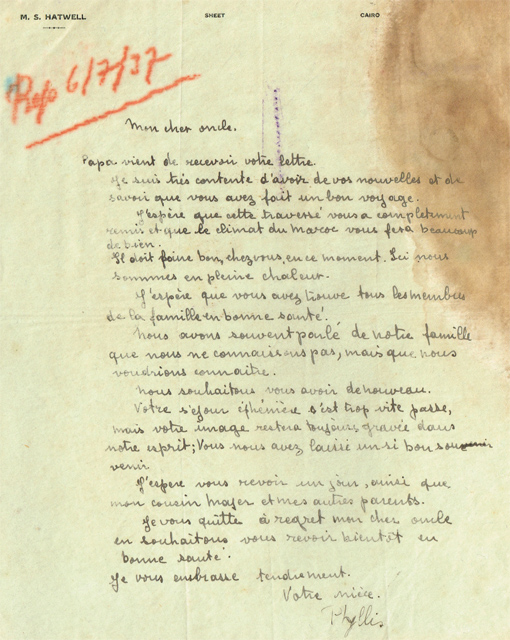 M. S. HATWELL SHEET CAIRO
Rep 6/7/37
Mon cher oncle.
Papa vient de recevoir votre lettre.
Je suis très contente d'avoir de vos nouvelles et de
savoir que vous avez fait un bon voyage.
J'espère que cette traversé vous a complètement
remis et que le climat du Maroc vous fera beaucoup
de bien.
Il doit faire bon, chez vous, en ce moment. Ici nous
sommes en pleine chaleur.
J'espère que vous avez trouvé tous les membres
de la famille en bonne santé.
Nous avons souvent parlé de notre famille
que nous ne connaissons pas, mais que nous
voudrions connaitre.
Nous souhaitons vous avoir de nouveau.
Votre séjour éphémère s'est trop vite passe,
mais votre image restera toujours gravée dans
notre esprit; Vous nous avez laissé un si bon souvenir
venir
J'espère vous revoir un jour, ainsi que
mon cousin Mayer et mes autres parents.
Je vous quitte à regret mon cher oncle
en souhaitons vous revoir bientôt en
bonne santé.
Je vous embrasse tendrement.
Votre nièce.
Phyllis